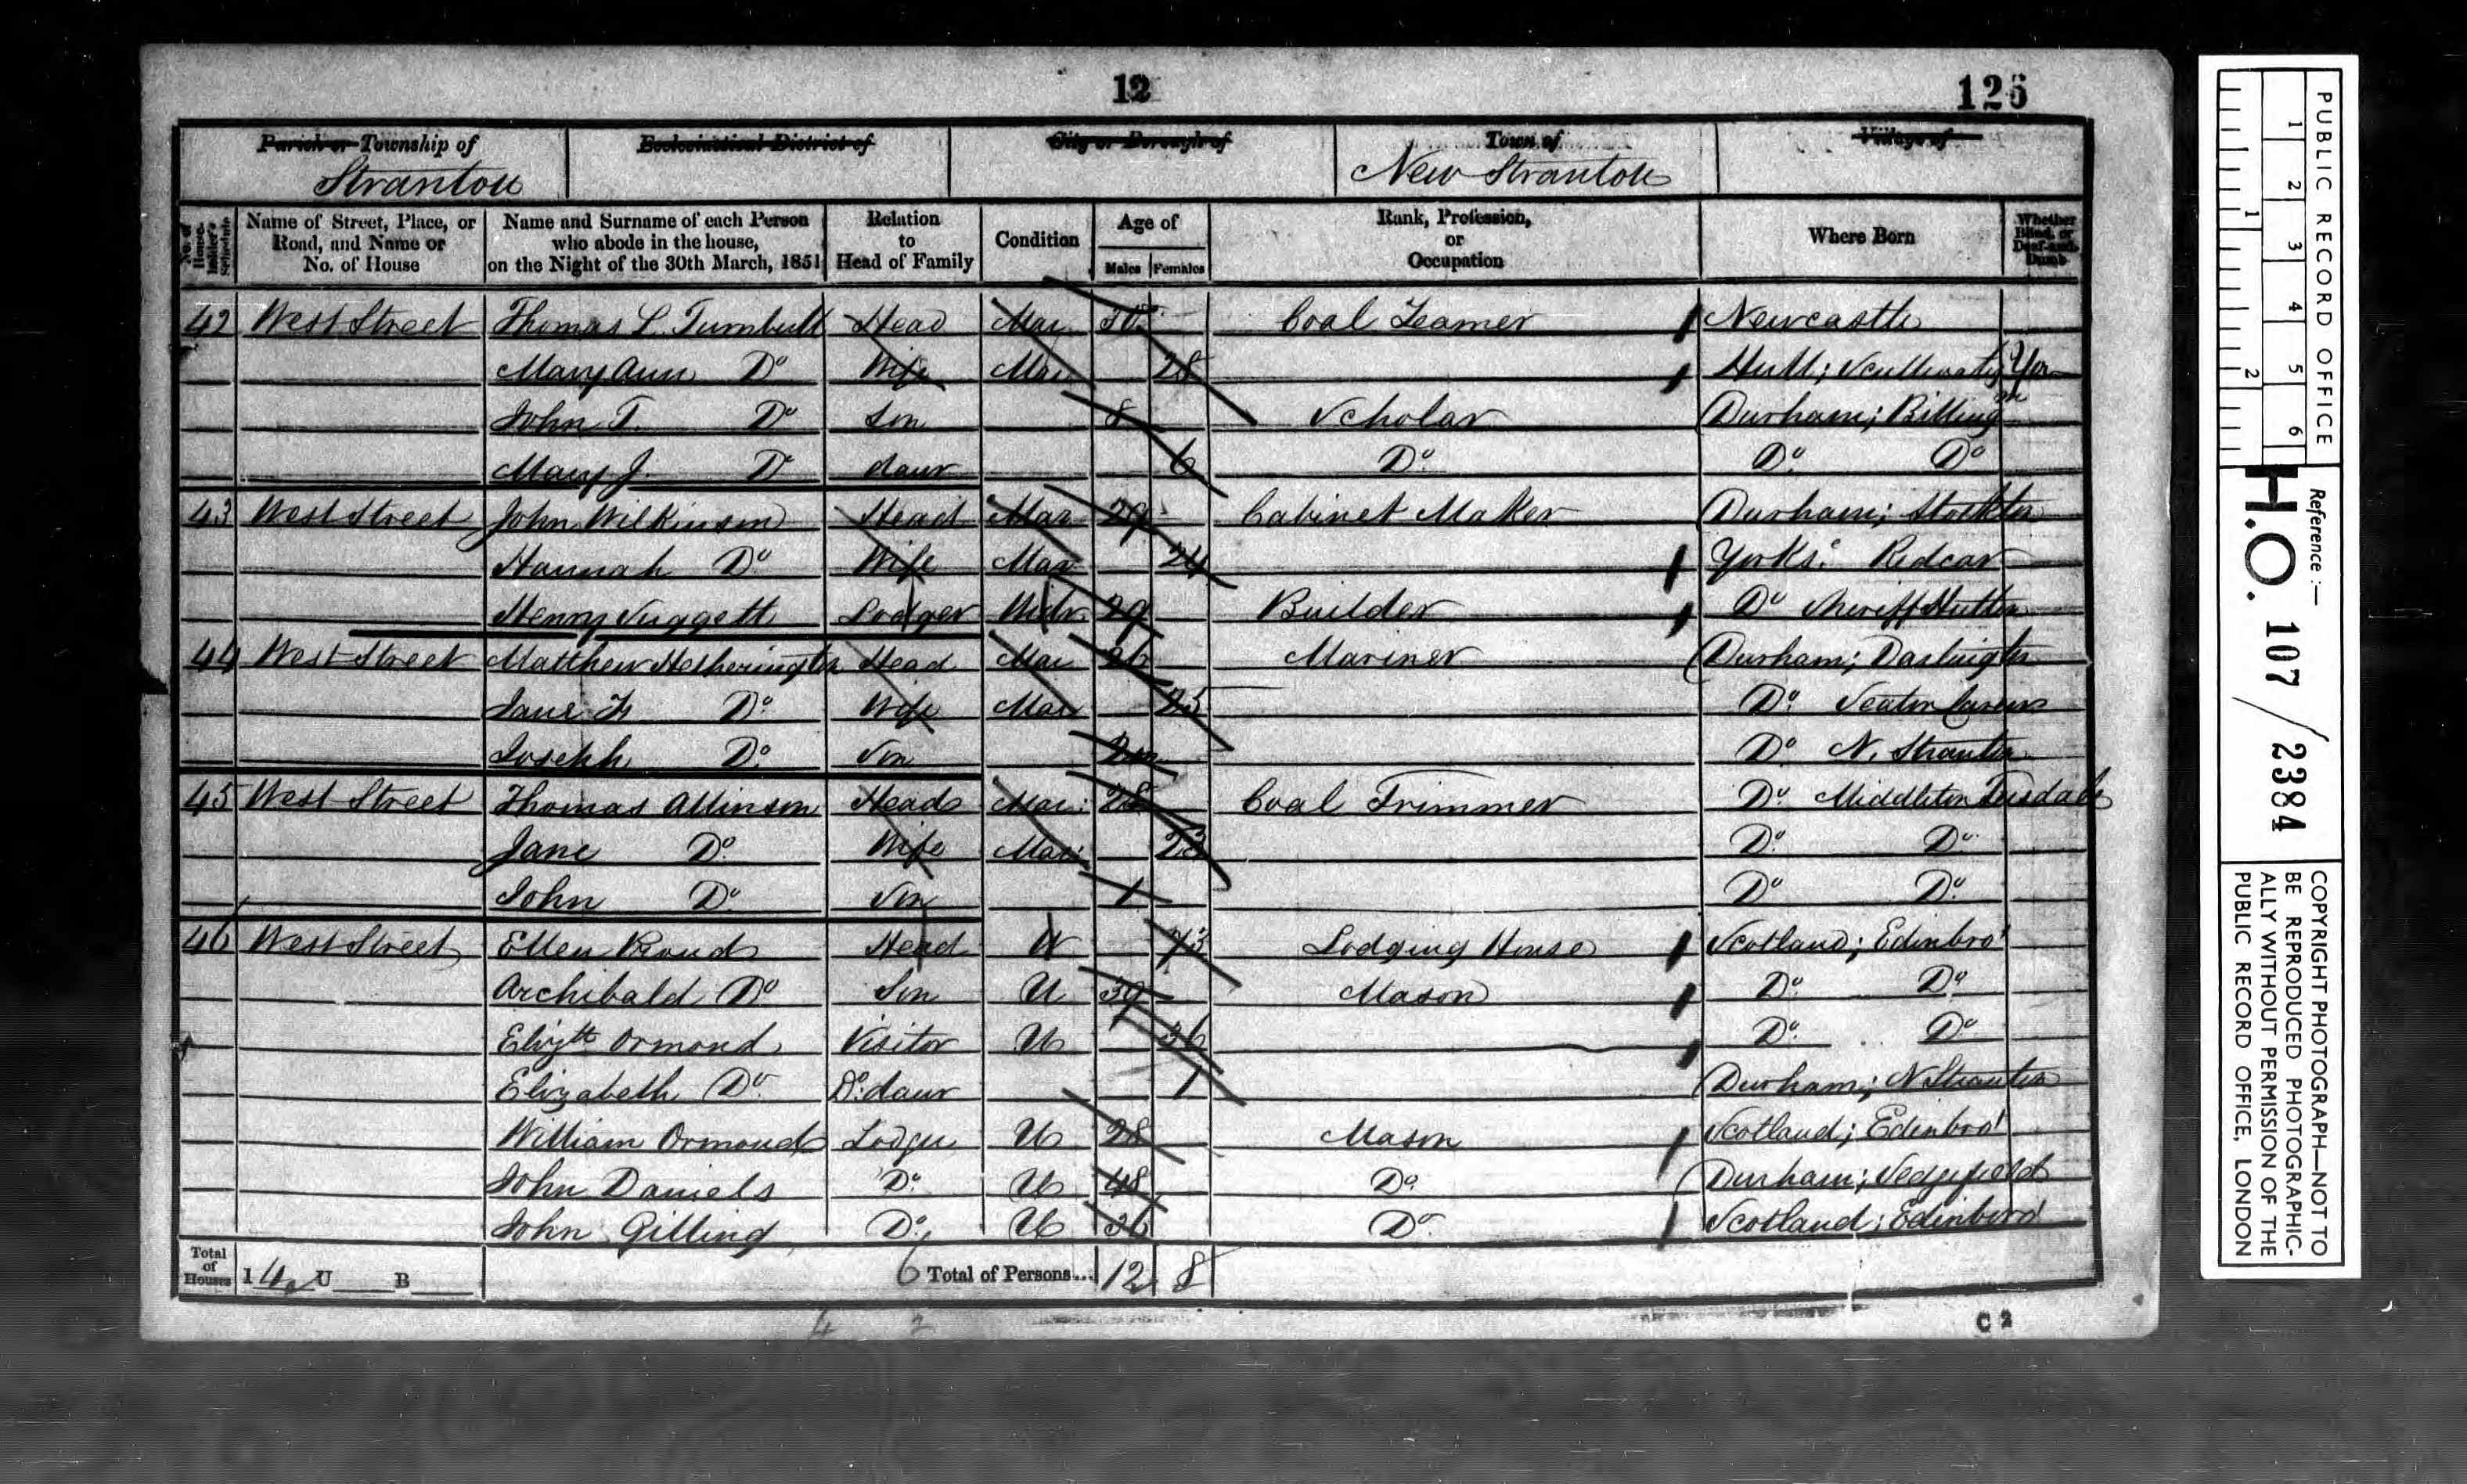 12
126
Parish or Township of
Ecclesiastical District of
City or Borough of
Town of
Village of
Stranton
New Stranton
No. of House-holder's Schedule
Name of Street, Place, or Road, and Name or No. of House
Name and Surname of each Person who abode in the house, on the Night of the 30th March, 1851
Relation to Head of Family
Condition
Age of
Males Females
Rank, Profession, or Occupation
Where Born
Whether Blind, or Deaf-and-Dumb
42 West Street Thomas L. Turnbull Head Mar Coal Teamer Newcastle
Mary Ann Do Wife Mar 28 Hull; Yor
John T. Do Son 8 Scholar Durham; Billingm
Mary J. Do daur 6 Do Do Do
43 West Street John Wilkinson Head Mar 29 Cabinet Maker Durham; Stockton
Hannah Do Wife Mar 24 Yorks: Redcar
Henry Suggett Lodger Widr 29 Builder Do Sheriff Hutton
44 West Street Matthew Hetherington Head Mar 26 Mariner Durham; Darlington
Jane Do Wife Mar 25 Do Seaton Carew
Joseph Do Son 2m Do N. Stranton
45 West Street Thomas Allinson Head Mar: 28 Coal Trimmer Do Middleton Teesdale
Jane Do Wife Mar: 23 Do Do
John Do Son 1 Do Do
46 West Street Ellen Proud Head W 73 Lodging House Scotland; Edinbro'
Archibald Do Son U 39 Mason Do Do
Elizth Ormond Visitor U 36 Do Do
Elizabeth Do Do daur 1 Durham; N Stranton
William Ormond Lodger U 28 Mason Scotland; Edinbro'
John Daniels Do U 48 Do Durham; Sedgefield
John Gilling Do U 36 Do Scotland; Edinbro'
Total of Houses I 4 U B 6 Total of Persons... 12 8
4 2
C 2
PUBLIC RECORD OFFICE
1 2 3 4 5 6
1 2
Reference:-
H.O. 107/2384
COPYRIGHT PHOTOGRAPH—NOT TO
BE REPRODUCED PHOTOGRAPHIC-
ALLY WITHOUT PERMISSION OF THE
PUBLIC RECORD OFFICE, LONDON